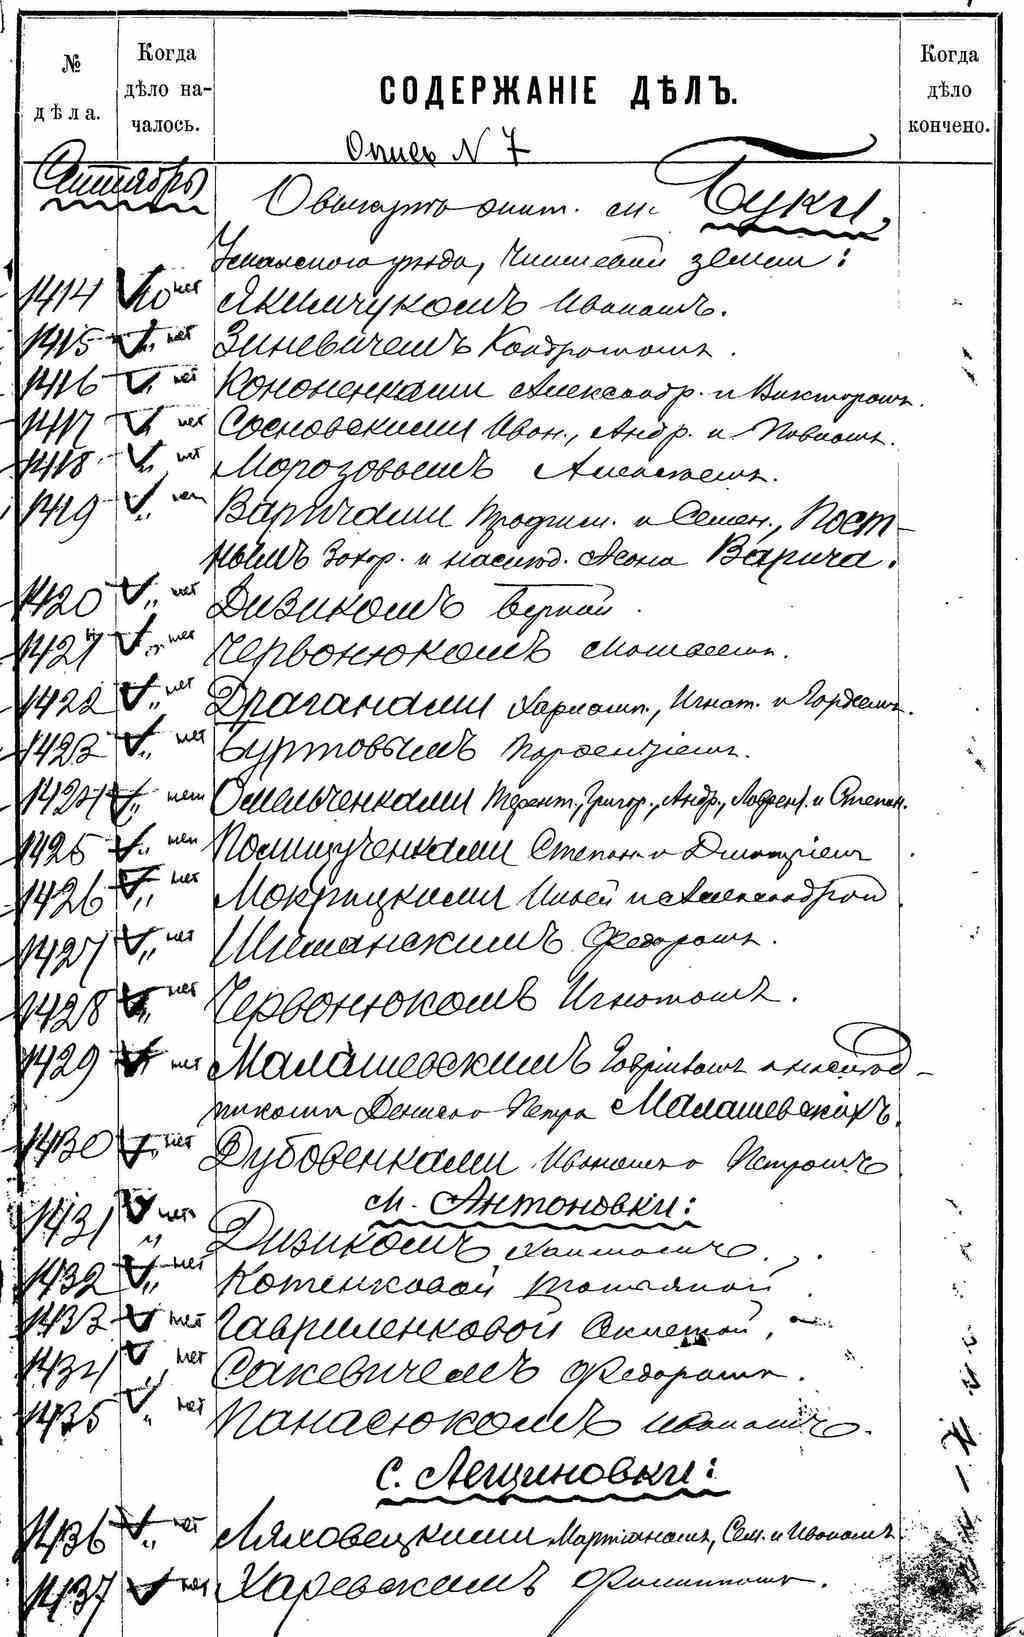 № дѣла.
Когда дѣло началось.
СОДЕРЖАНІЕ ДѢЛЪ.
Когда дѣло кончено.
Опись N 7
Октябрь
О выкупѣ м. Буки,
Уманскаго уѣзда, Чиншевой земли:
1414 10 нет Якимчукомъ Иваномъ.
1415 " нет Зиневичемъ Кондратомъ.
1416 " нет Кононенками Александр. и Викторомъ.
1417 " нет Сосновскими Иван., Андр. и Павломъ.
1418 " нет Морозовымъ Алексѣемъ.
1419 " нет Варичами Трофим. и Семен., Пост-
нымъ Захар. и наслѣд. Леона Варича.
1420 " нет Дизикомъ
1421 " нет Червонюкомъ Матвеемъ.
1422 " нет Драганами Харламп., Игнат. и Гордѣемъ.
1423 " нет Буртовымъ Парфентіемъ.
1424 " нет Омельченками Терент., Григор., Андр., Лаврен. и Степан.
1425 " нет Полищученками Степан. и Дмитріем
1426 " нет Мокрицкими Ильей и Александрой
1427 " нет Шиманскимъ Федоромъ.
1428 " нет Червонюкомъ Игнатомъ.
1429 " нет Малашевскимъ Гавріиломъ и наслѣд-
никами Дениса и Петра Малашевскихъ.
1430 " нет Дубовенками Иваномъ и Петромъ
м. Антоновки:
1431 " нет Дизикомъ
1432 " нет Котенковой Татьяной
1433 " нет Гавриленковой Феклѣтой.
1434 " нет Сакевичемъ Федоромъ.
1435 " нет Панасюкомъ Иваномъ.
с. Лещиновки:
1436 " нет Ляховецкими Мартиномъ, Сем. и Иваномъ
1437 нет Харевскимъ Филиппомъ.